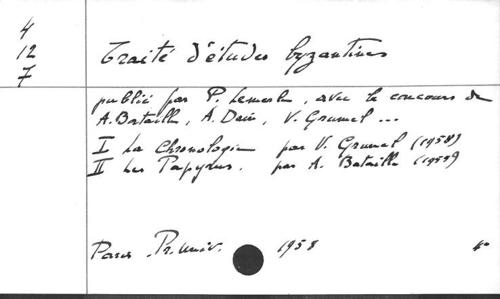 4
12
7
Traité d'études byzantines
publié par P. Lemerle, avec le concours de
A. Bataille, A. Dain, V. Grumel ...
I La Chronologie par V. Grumel (1958)
II Les Papyrus. par A. Bataille (1955)
Paris. Pr. Univ. 1958 4°